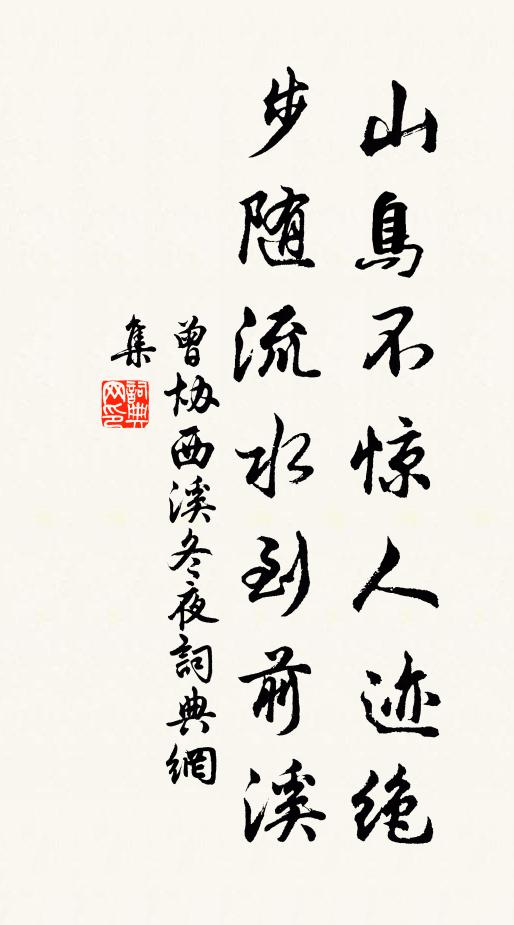 山鳥不惊人迹绝
步随流水到前溪
曾协西溪冬夜詞典網
集
詞典
网印